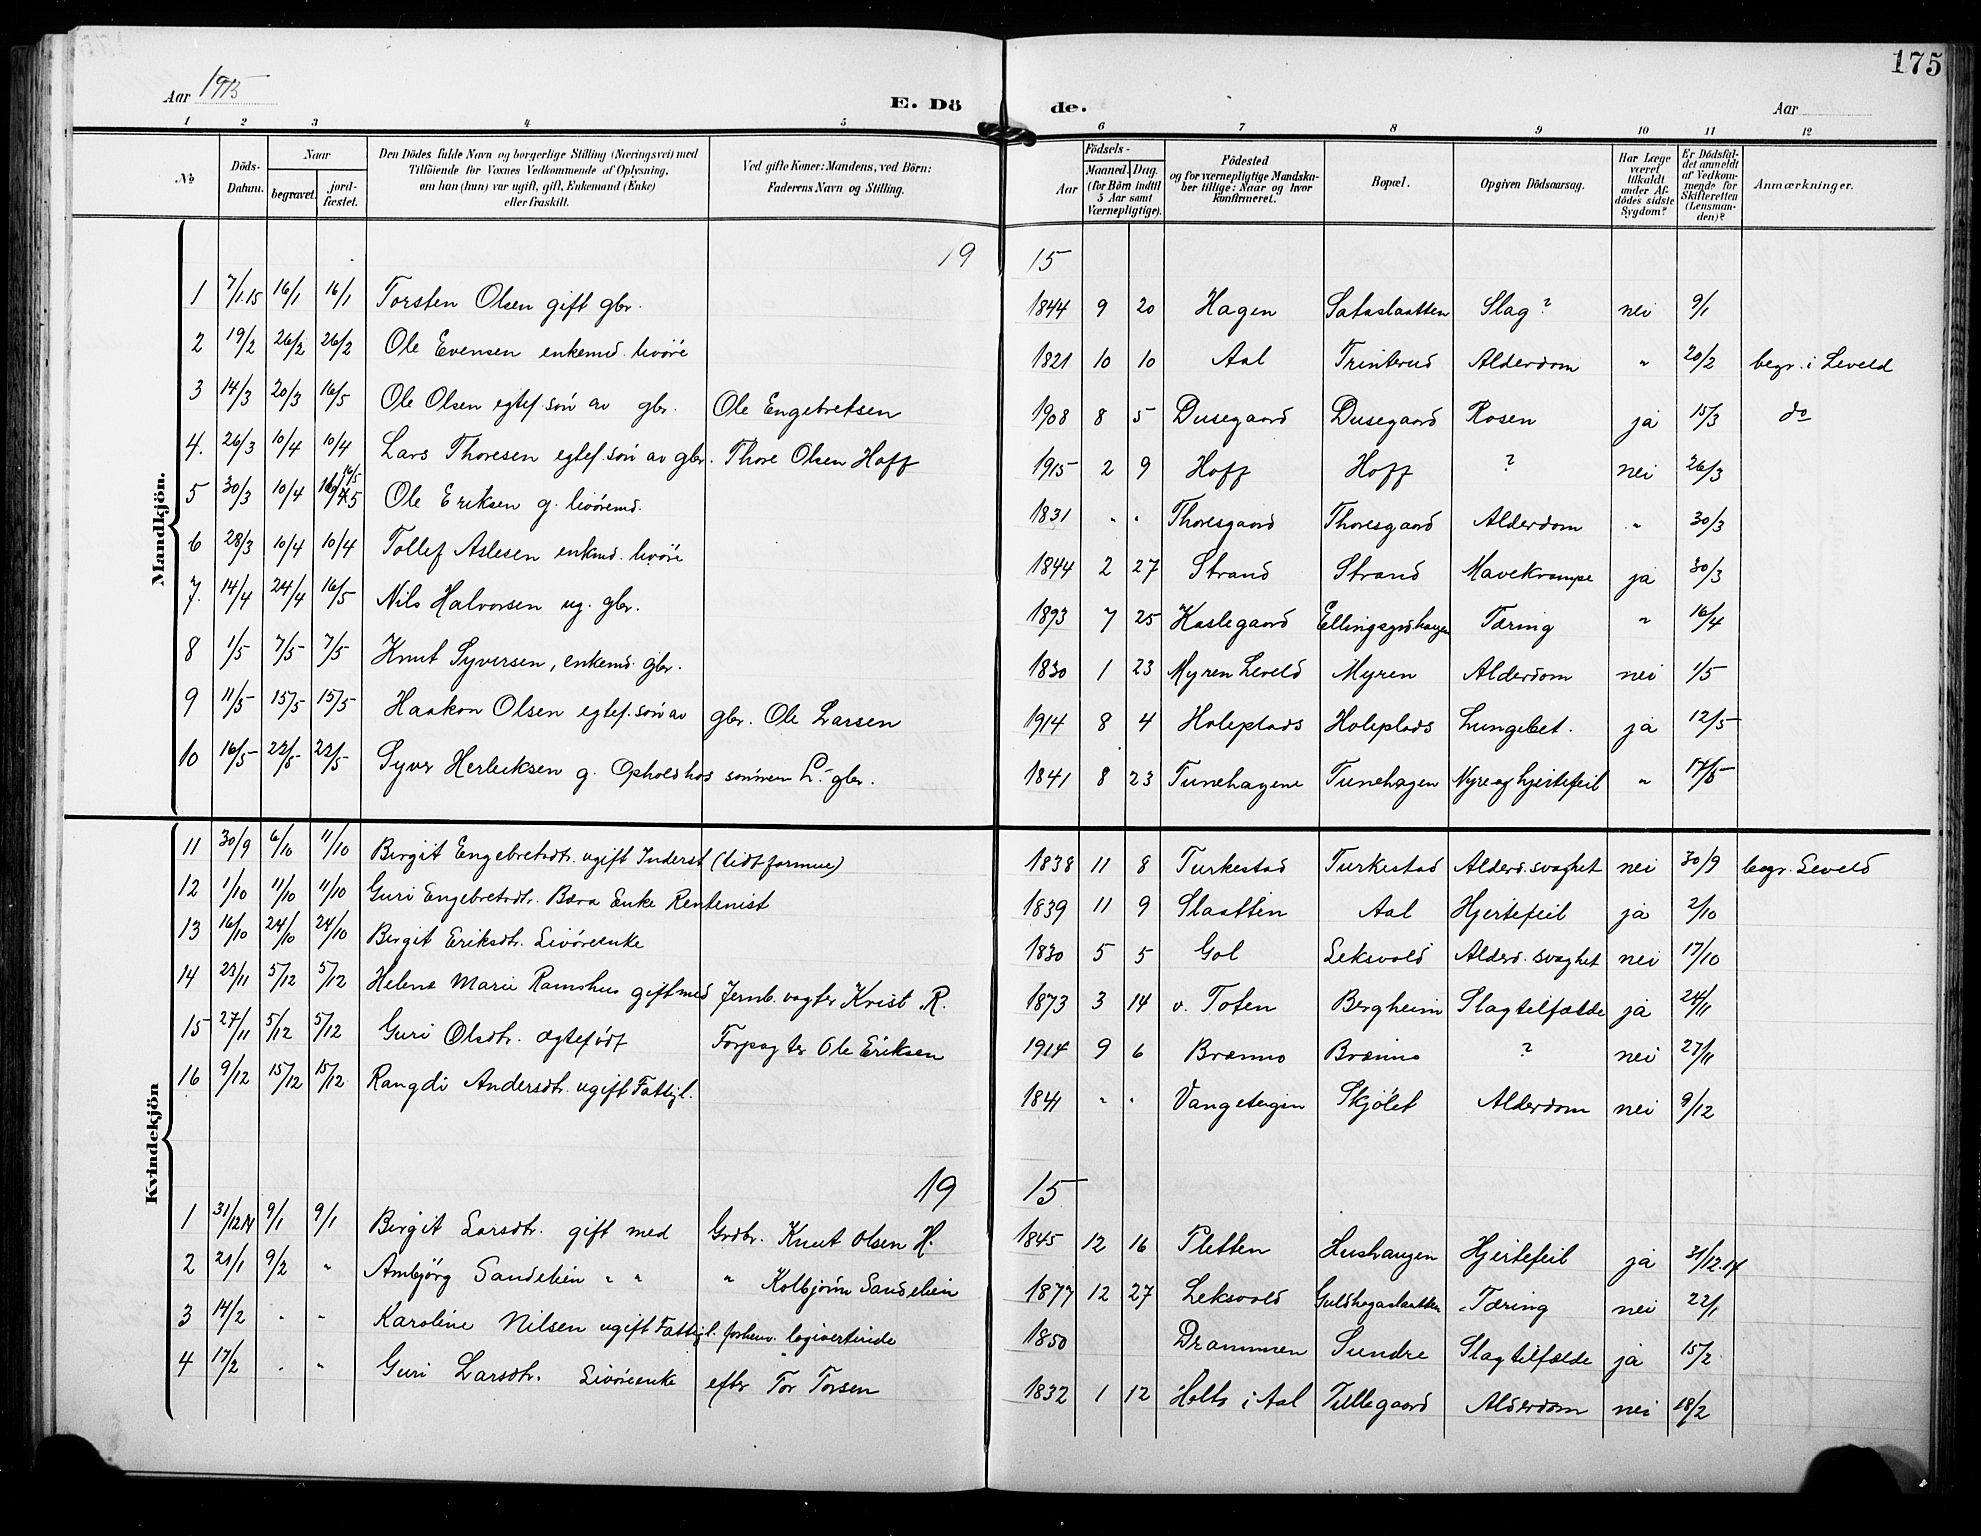 175
Aar 1915
E. Dö de.
Aar
1 2 3 4 5 6 7 8 9 10 11 12
No
Döds-Datum.
Naar
begravet.
jord-fæstet.
Den Dödes fulde Navn og borgerlige Stilling (Næringsvei) med
Tilföiende for Voxnes Vedkommende af Oplysning,
om han (hun) var ugift, gift, Enkemand (Enke)
eller fraskilt.
Ved gifte Koner: Mandens, ved Börn:
Faderens Navn og Stilling.
Födsels-
Aar
Maaned. Dag.
(for Börn indtil
5 Aar samt
Værnepligtige).
Födested
og for værnepligtige Mandska-
ber tillige: Naar og hvor
konfirmeret.
Bopæl.
Opgiven Dödsaarsag.
Har Læge
været
tilkaldt
under Af-
dödes sidste
Sygdom?
Er Dödsfal-
det anmeldt
af Vedkom-
mende for
Skifteretten
(Lensman-
den)?
Anmærkninger.
Mandkjön.
19 15
1 7/1.15 16/1 16/1 Torsten Olsen gift gbr. 1844 9 20 Hagen Sataslaatten Slag? nei 9/1
2 19/2 26/2 26/2 Ole Evensen enkemd. livöre 1821 10 10 Aal Trinterud Alderdom " 20/2 begr. i Leveld
3 14/3 20/3 16/5 Ole Olsen egtef. sön av gbr. Ole Engebretsen 1908 8 5 Dusegaard Dusegaard Rosen ja 15/3 do
4. 26/3 10/4 10/4 Lars Thoresen egtef. sön av gbr. Thore Olsen Hoff 1915 2 9 Hoff Hoff ? nei 26/3
5 30/3 10/4 16/5 Ole Eriksen g. livöremd. 1831 " " Thoresgaard Thoresgaard Alderdom " 30/3
6 28/3 10/4 10/4 Tollef Aslesen enkmd. livöre 1844 2 27 Strand Strand Mavekrampe ja 30/3
7. 14/4 24/4 16/5 Nils Halvorsen ug. gbr. 1893 7 25 Kaslegaard Ellingsgrdhaugen Tæring " 16/4
8 1/5 7/5 7/5 Knut Syversen, enkemd. gbr. 1830 1 23 Myren Leveld Myren Alderdom nei 1/5
9 11/5 15/5 15/5 Haakon Olsen egtef. sön av gbr. Ole Larsen 1914 8 4 Holeplads Holeplads Lungebet. ja 12/5
10 16/5 22/5 22/5 Syver Herleiksen g. Ophold hos sönnen L. gbr. 1841 8 23 Tunehagene Tunehagen Nyre og hjertefeil " 17/5
Kvindekjön
11 30/9 6/10 11/10 Birgit Engebretsdtr. ugift Inderst (lidt formue) 1838 11 8 Turkestad Turkestad Alderd. svaghet nei 30/9 begr. Leveld
12 1/10 11/10 11/10 Guri Engebretsdtr. Bæra Enke Rentenist 1839 11 9 Slaatten Aal Hjertefeil ja 2/10
13 16/10 24/10 24/10 Birgit Eriksdtr. Livöreenke 1830 5 5 Gol Leksvold Alderd. svaghet nei 17/10
14 23/11 5/12 5/12 Helene Marie Ramshus gift med Jernb. vogter Krist. R. 1873 3 14 v. Toten Bergheim Slagtilfælde ja 24/11
15 27/11 5/12 5/12 Guri Olsdtr. ægtefödt Forpagter Ole Eriksen 1914 9 6 Brænno Brænno ? nei 27/11
16 9/12 15/12 15/12 Rangdi Andersdtr. ugift Fattigl. 1841 " " Vangeteigen Skjölet Alderdom nei 9/12
19 15
1 31/12.14 9/1 9/1 Birgit Larsdtr. gift med Grdbr. Knut Olsen H. 1845 12 16 Pletten Hushaugen Hjertefeil ja 31/12.14
2 21/1 9/2 " Ambjörg Sandelien " " " Kolbjörn Sandelien 1877 12 27 Leksvold Guldhagaslaatten Tæring nei 22/1
3 14/2 " " Karoline Nilsen ugift Fattigl. forhenv. logivertinde 1850 Drammen Sundre Slagtilfælde ja 15/2
4 17/2 " " Guri Larsdtr. Livöreenke efter Tor Torsen 1832 1 12 Holto i Aal Tullegaard Alderdom nei 18/2